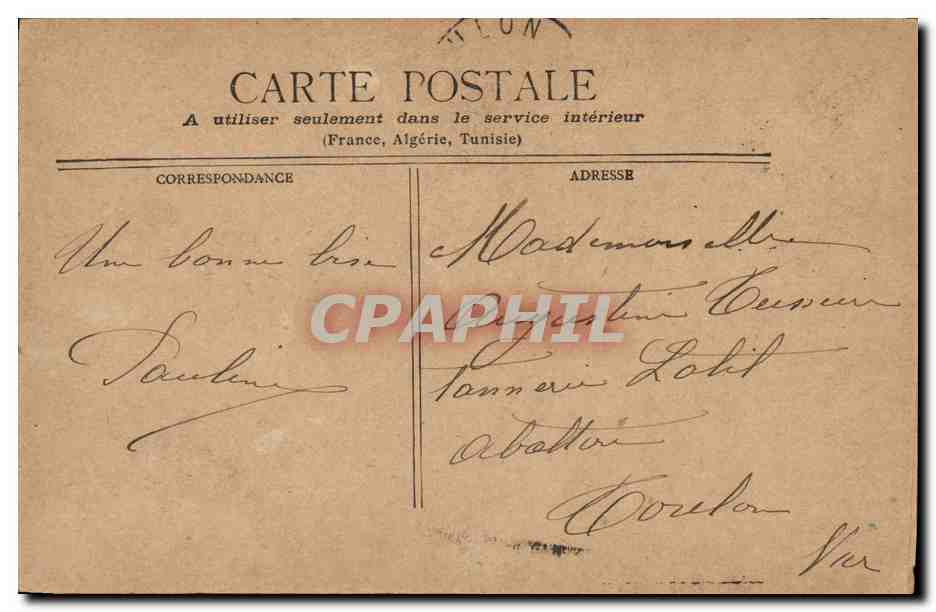 LON
CARTE POSTALE
A utiliser seulement dans le service intérieur
(France, Algérie, Tunisie)
CORRESPONDANCE
ADRESSE
Une bonne bise
Pauline
Mademoiselle
Augustine
Tannerie
abattoir
Toulon
Var
CPAPHIL